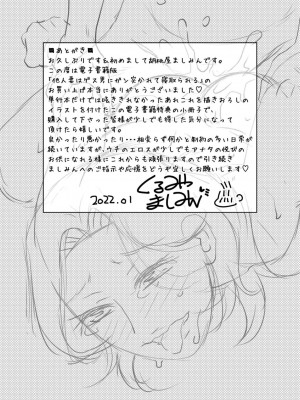 ■あとがき■
お久しぶりです&初めまして胡桃屋ましみんです。
この度は電子書籍版
「他人妻はゲス男にガン突かれて寝取られる」の
お買い上げ本当にありがとうございました♡
単行本だけでは吐ききれなかったあれこれを描きおろしの
イラストを付けたこの電子書籍特典の小冊子で、
購入して下さった皆様が少しでも得した気分になって
頂けたら嬉しいです。
良かったり悪かったり…相変らず何かと制約の多い日常が
続いていますが、ウチのエロスが少しでもアナタの夜の
お供になれる様にこれからも頑張りますので引き続き
ましみんへのご指示や応援をどうぞ宜しくお願いします♡
2022.01
くるみや
ましみん